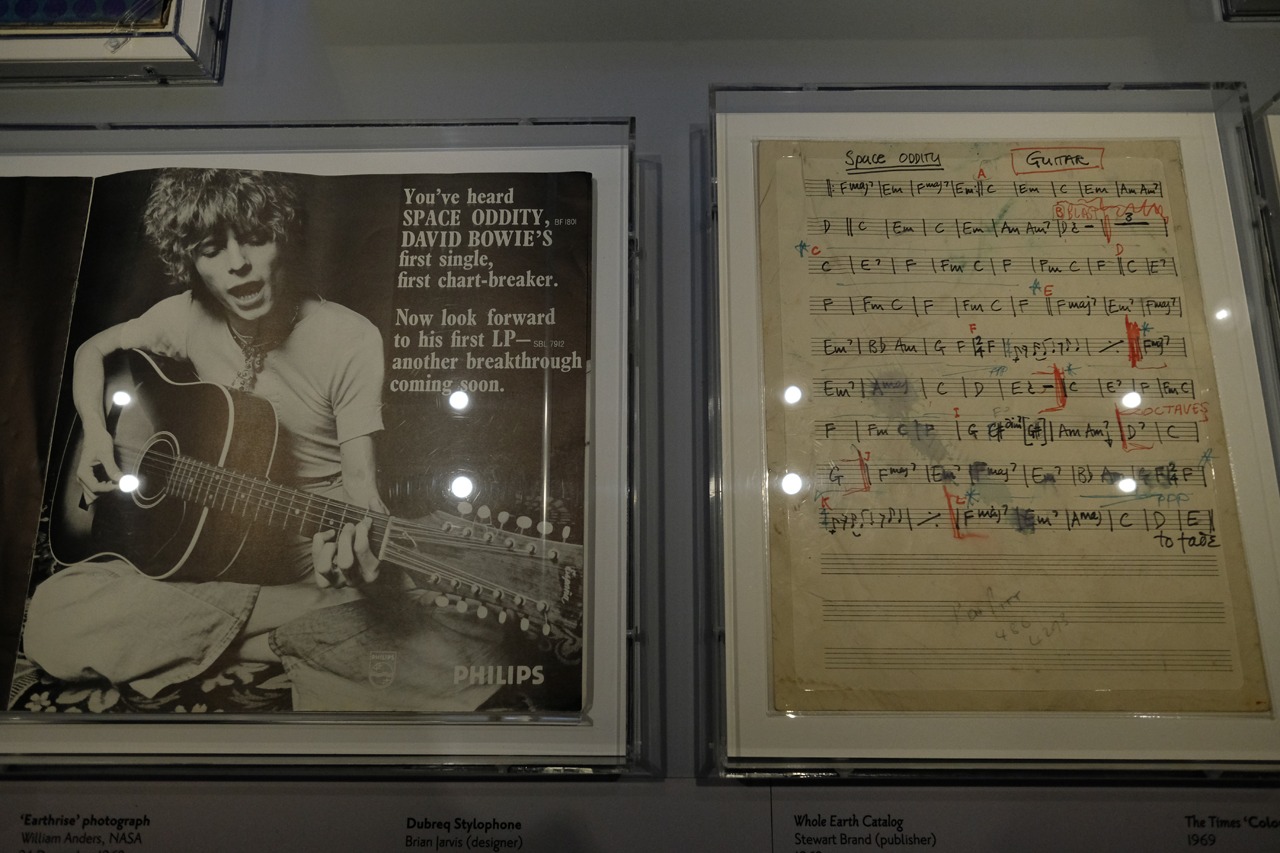 You've heard
SPACE ODDITY, BF 1801
DAVID BOWIE'S
first single,
first chart-breaker.
Now look forward
to his first LP— SBL 7912
another breakthrough
coming soon.
PHILIPS
PHILIPS
Space ODDITY
GUITAR
A
Fmaj7 | Em | Fmaj7 | Em C | Em | C | Em | Am Am7
B
D C | Em | C | Em | Am Am7 | D
3
C D
C | E7 | F | Fm C | F | Fm C | F C | E7
E
F | Fm C | F | Fm C | F Fmaj7 | Em7 | Fmaj7
F
Em7 | Bb Am | G F 2/4 F Fmaj7
Em7 Amaj | C | D | E C | E7 | F | Fm C
I OCTAVES
F | Fm C | F | G G# Am Am7 D7 | C
G Fmaj7 | Em7 Fmaj7 | Em7 | Bb Am G F 2/4 F
K L PPP
Fmaj7 Em7 | Amaj | C | D | E
to fade
'Earthrise' photograph
William Anders, NASA
Dubreq Stylophone
Brian Jarvis (designer)
Whole Earth Catalog
Stewart Brand (publisher)
The Times 'Colo
1969